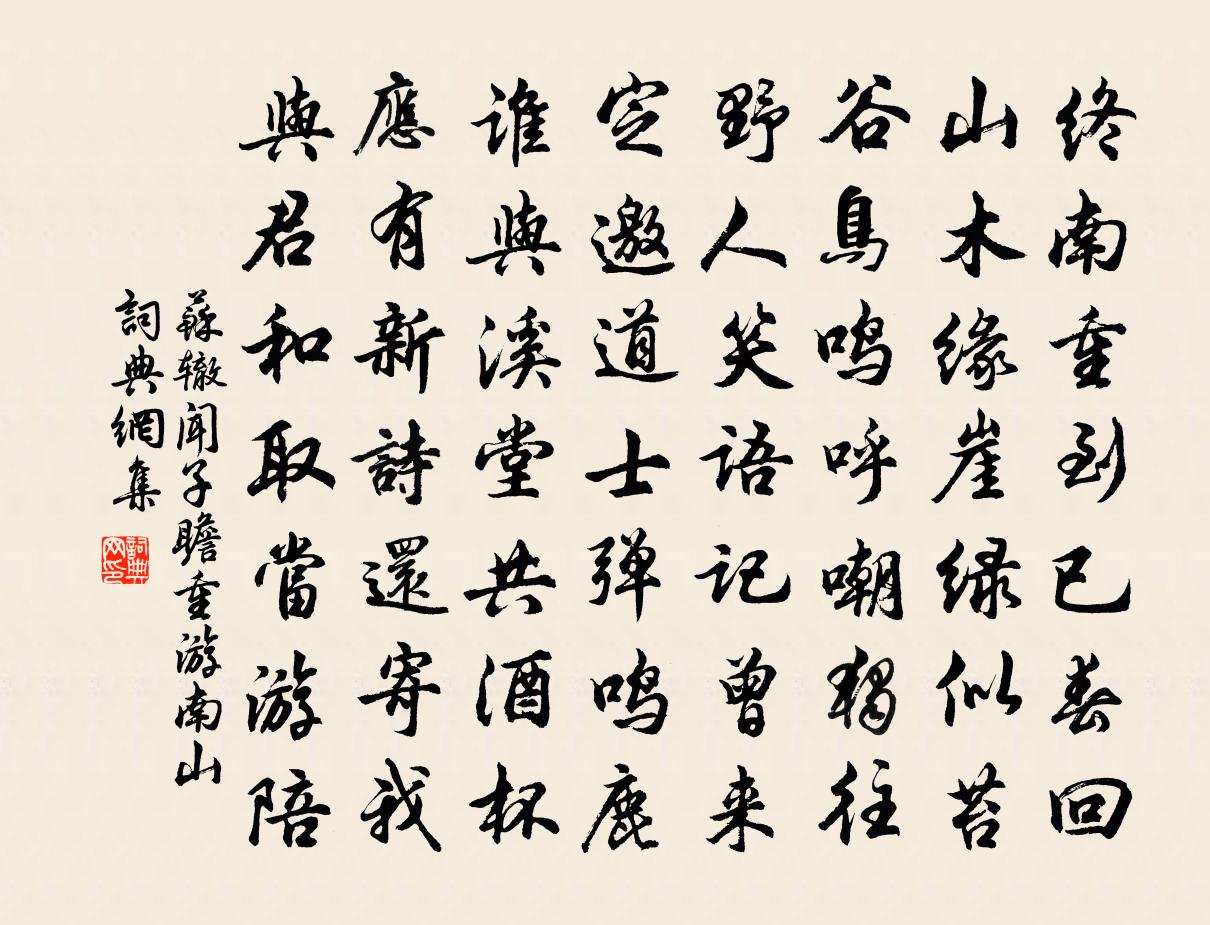 终南重到已春回
山木缘崖绿似苔
谷鳥鸣呼嘲獨往
野人笑语记曾来
定邀道士弹鸣鹿
谁與溪堂共酒杯
應有新詩還寄我
與君和取當游陪
蘇辙聞子瞻重游南山
詞典網集
詞典
网印